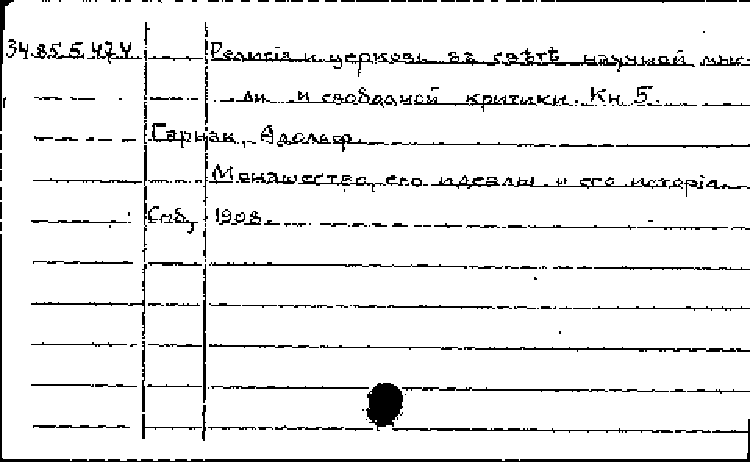 34.85.5.474 Религія и церковь въ свѣтѣ научной мыс-
ли и свободной критики. Кн 5.
Гарнак, Адольф.
Монашество, его идеалы и его исторія.
Спб, 1908.